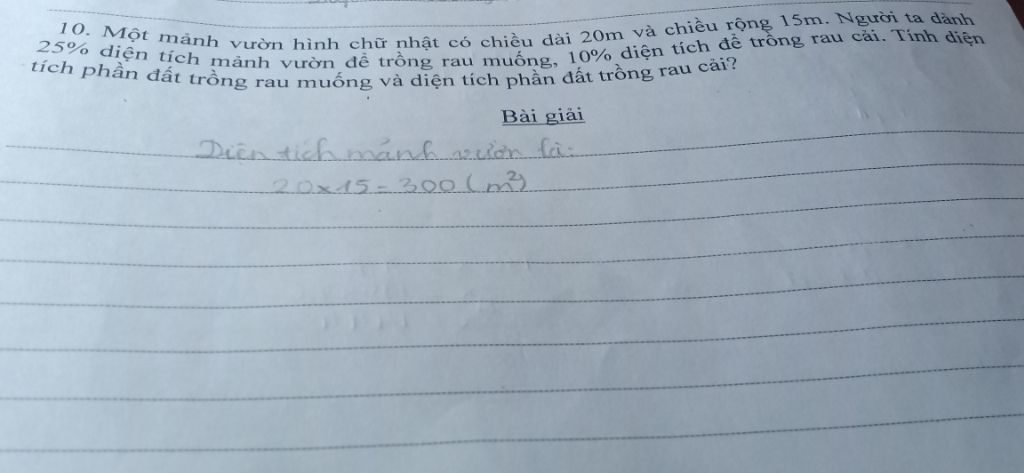 10. Một mảnh vườn hình chữ nhật có chiều dài 20m và chiều rộng 15m. Người ta dành
25% diện tích mảnh vườn để trồng rau muống, 10% diện tích để trồng rau cải. Tính diện
tích phần đất trồng rau muống và diện tích phần đất trồng rau cải?
Bài giải
Diện tích mảnh vườn là:
20x15=300 (m²)